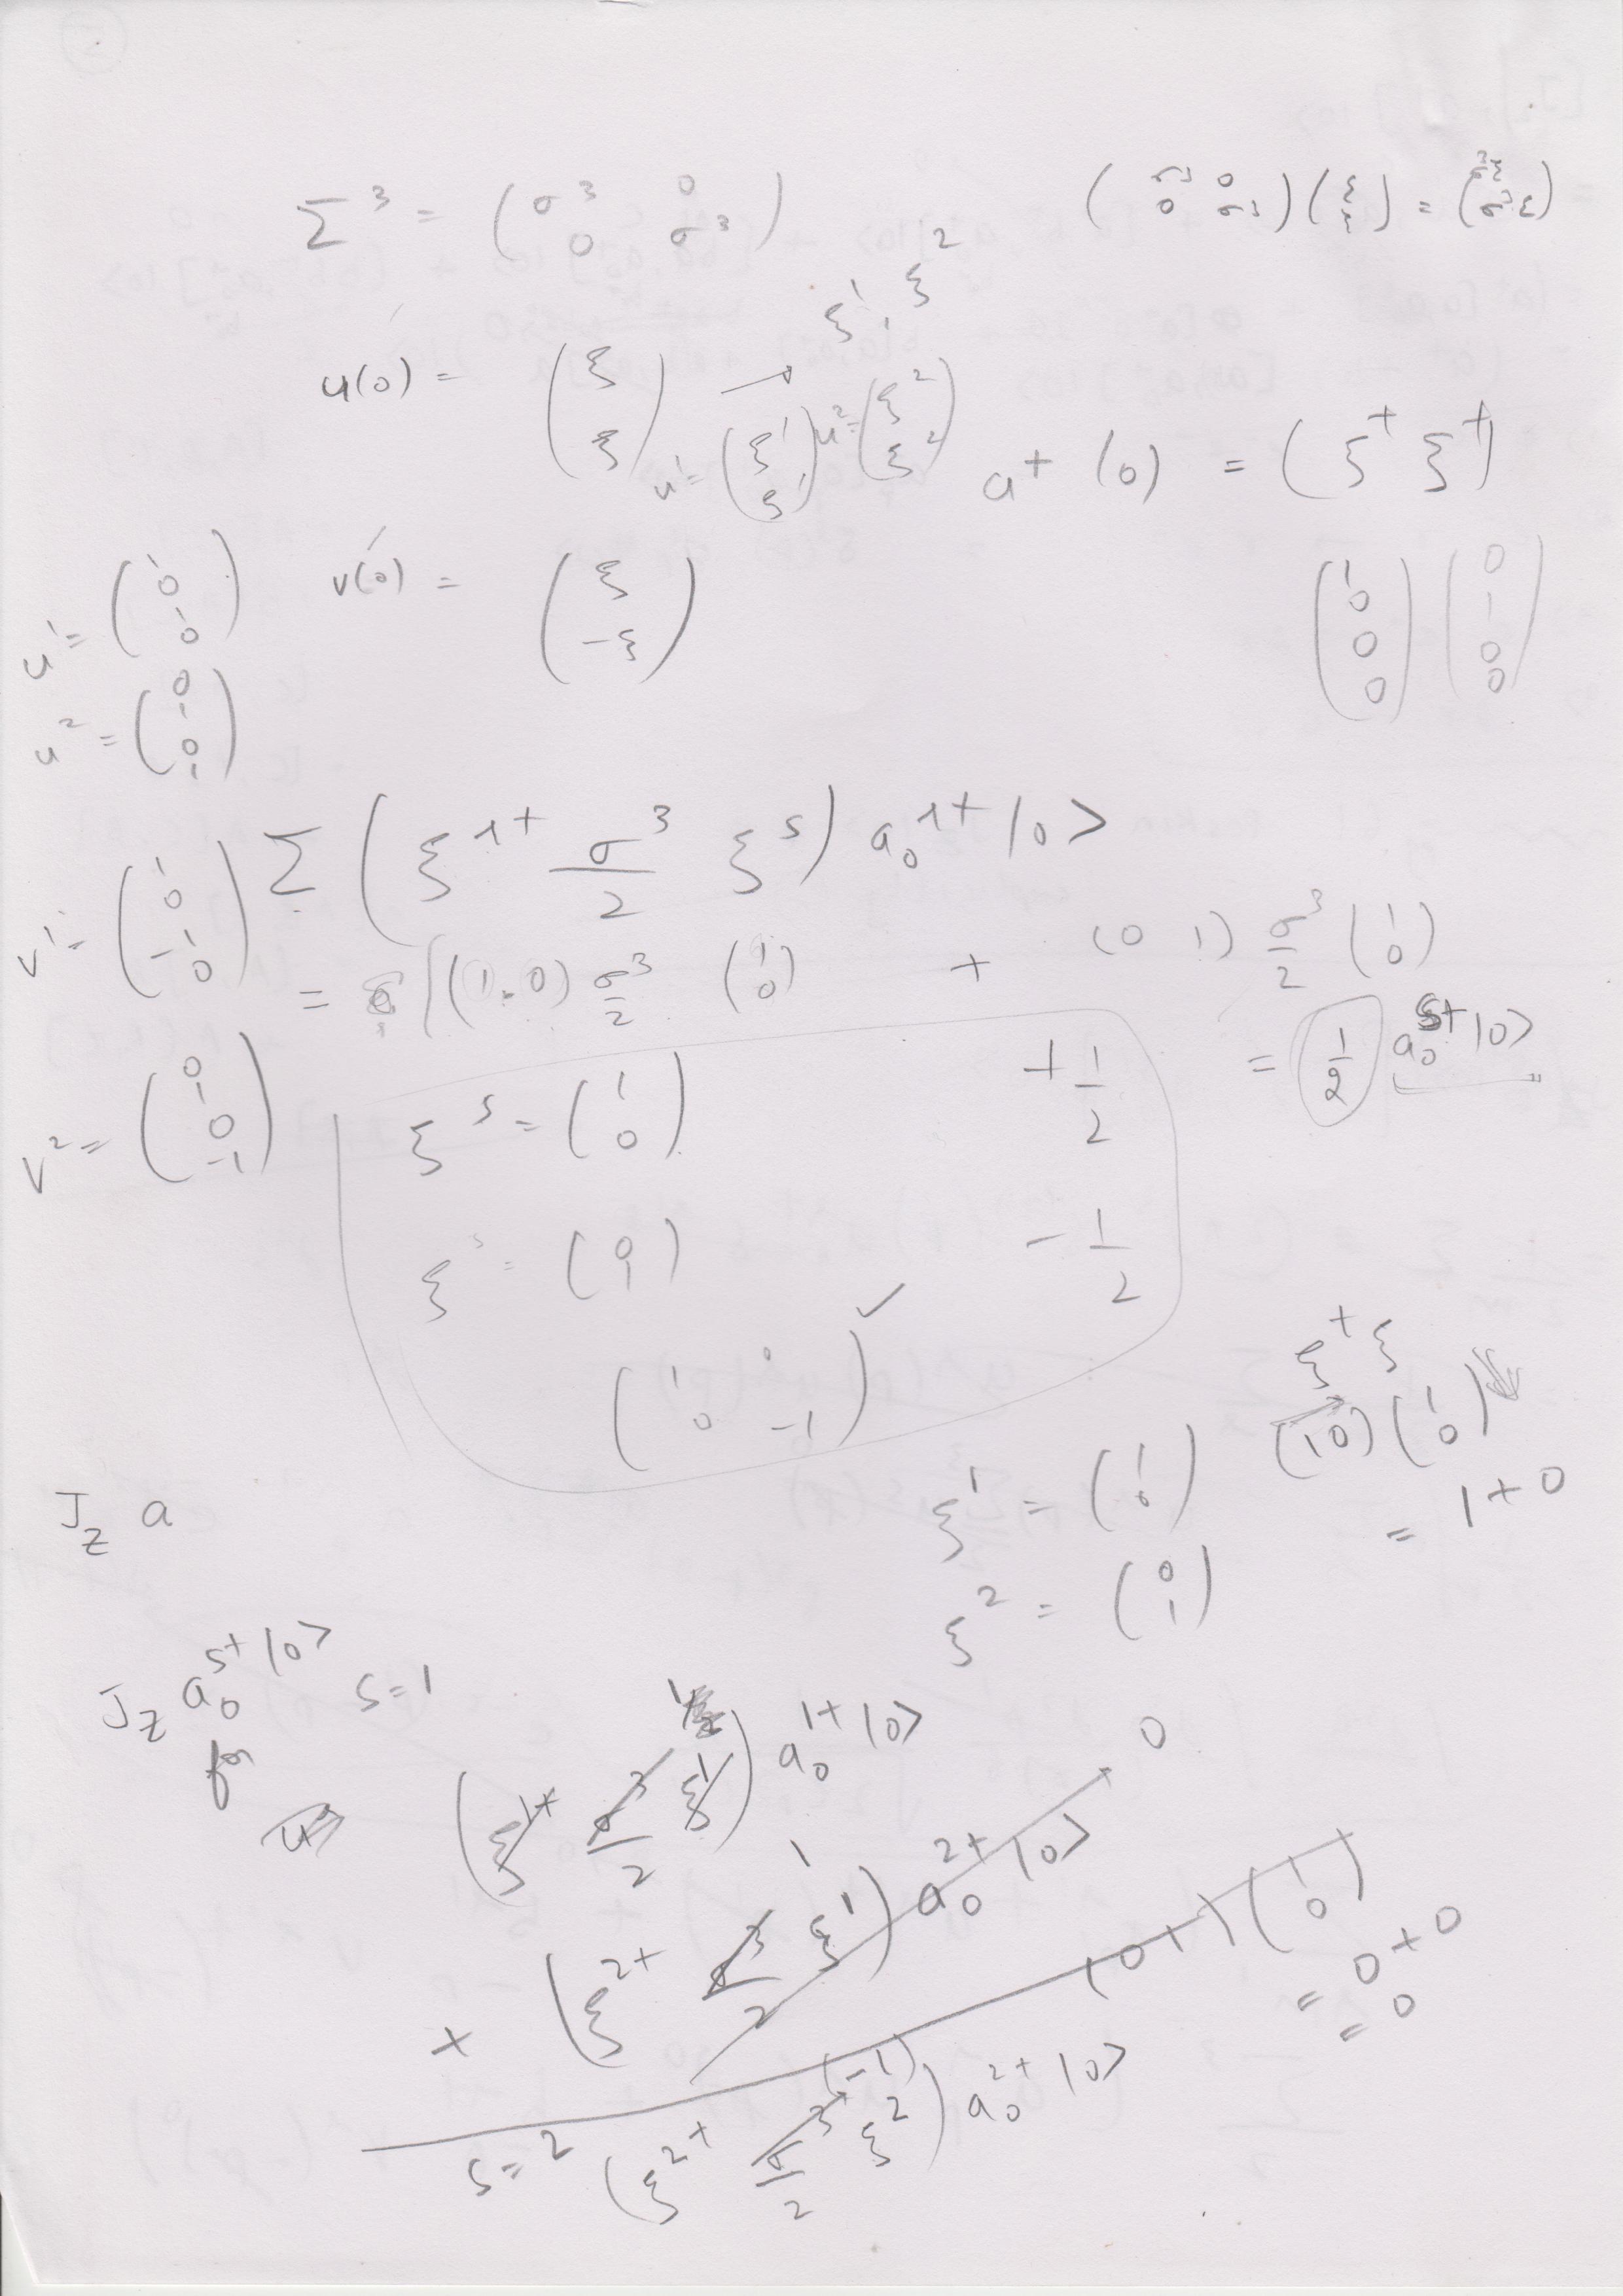 Σ³ = ( σ³ 0 0 σ³ )
( σ³ 0 0 σ³ ) ( ξ ξ ) = ( σ³ξ σ³ξ )
ξ¹, ξ²
u(0) = ( ξ ξ ) → u¹ = ( ξ¹ ξ¹ ) u² = ( ξ² ξ² )
u⁺ (0) = ( ξ⁺ ξ⁺ )
v(0) = ( ξ -ξ )
( 1 0 0 0 ) ( 0 1 0 0 )
u¹ = ( 1 0 1 0 )
u² = ( 0 1 0 1 )
v¹ = ( 1 0 -1 0 )
v² = ( 0 1 0 -1 )
Σ ( ξʳ⁺ σ³/2 ξˢ ) a₀ʳ⁺ |0>
= ( (1 0) σ³/2 ( 1 0 ) + (0 1) σ³/2 ( 1 0 )
= 1/2 a₀ˢ⁺ |0>
ξˢ = ( 1 0 ) + 1/2
ξˢ = ( 0 1 ) - 1/2
( 1 0 0 -1 ) ✓
ξ⁺ ξ
(1 0) ( 1 0 )
= 1 + 0
ξ¹ = ( 1 0 )
ξ² = ( 0 1 )
J_z a
J_z a₀ˢ⁺ |0> s=1
for
( ξ¹⁺ σ³/2 ξ¹ ) a₀¹⁺ |0>
+ ( ξ²⁺ σ³/2 ξ¹ ) a₀²⁺ |0> 0
(0 1) ( 1 0 )
= 0 + 0
= 0
(-1)
s=2 ( ξ²⁺ σ³/2 ξ² ) a₀²⁺ |0>